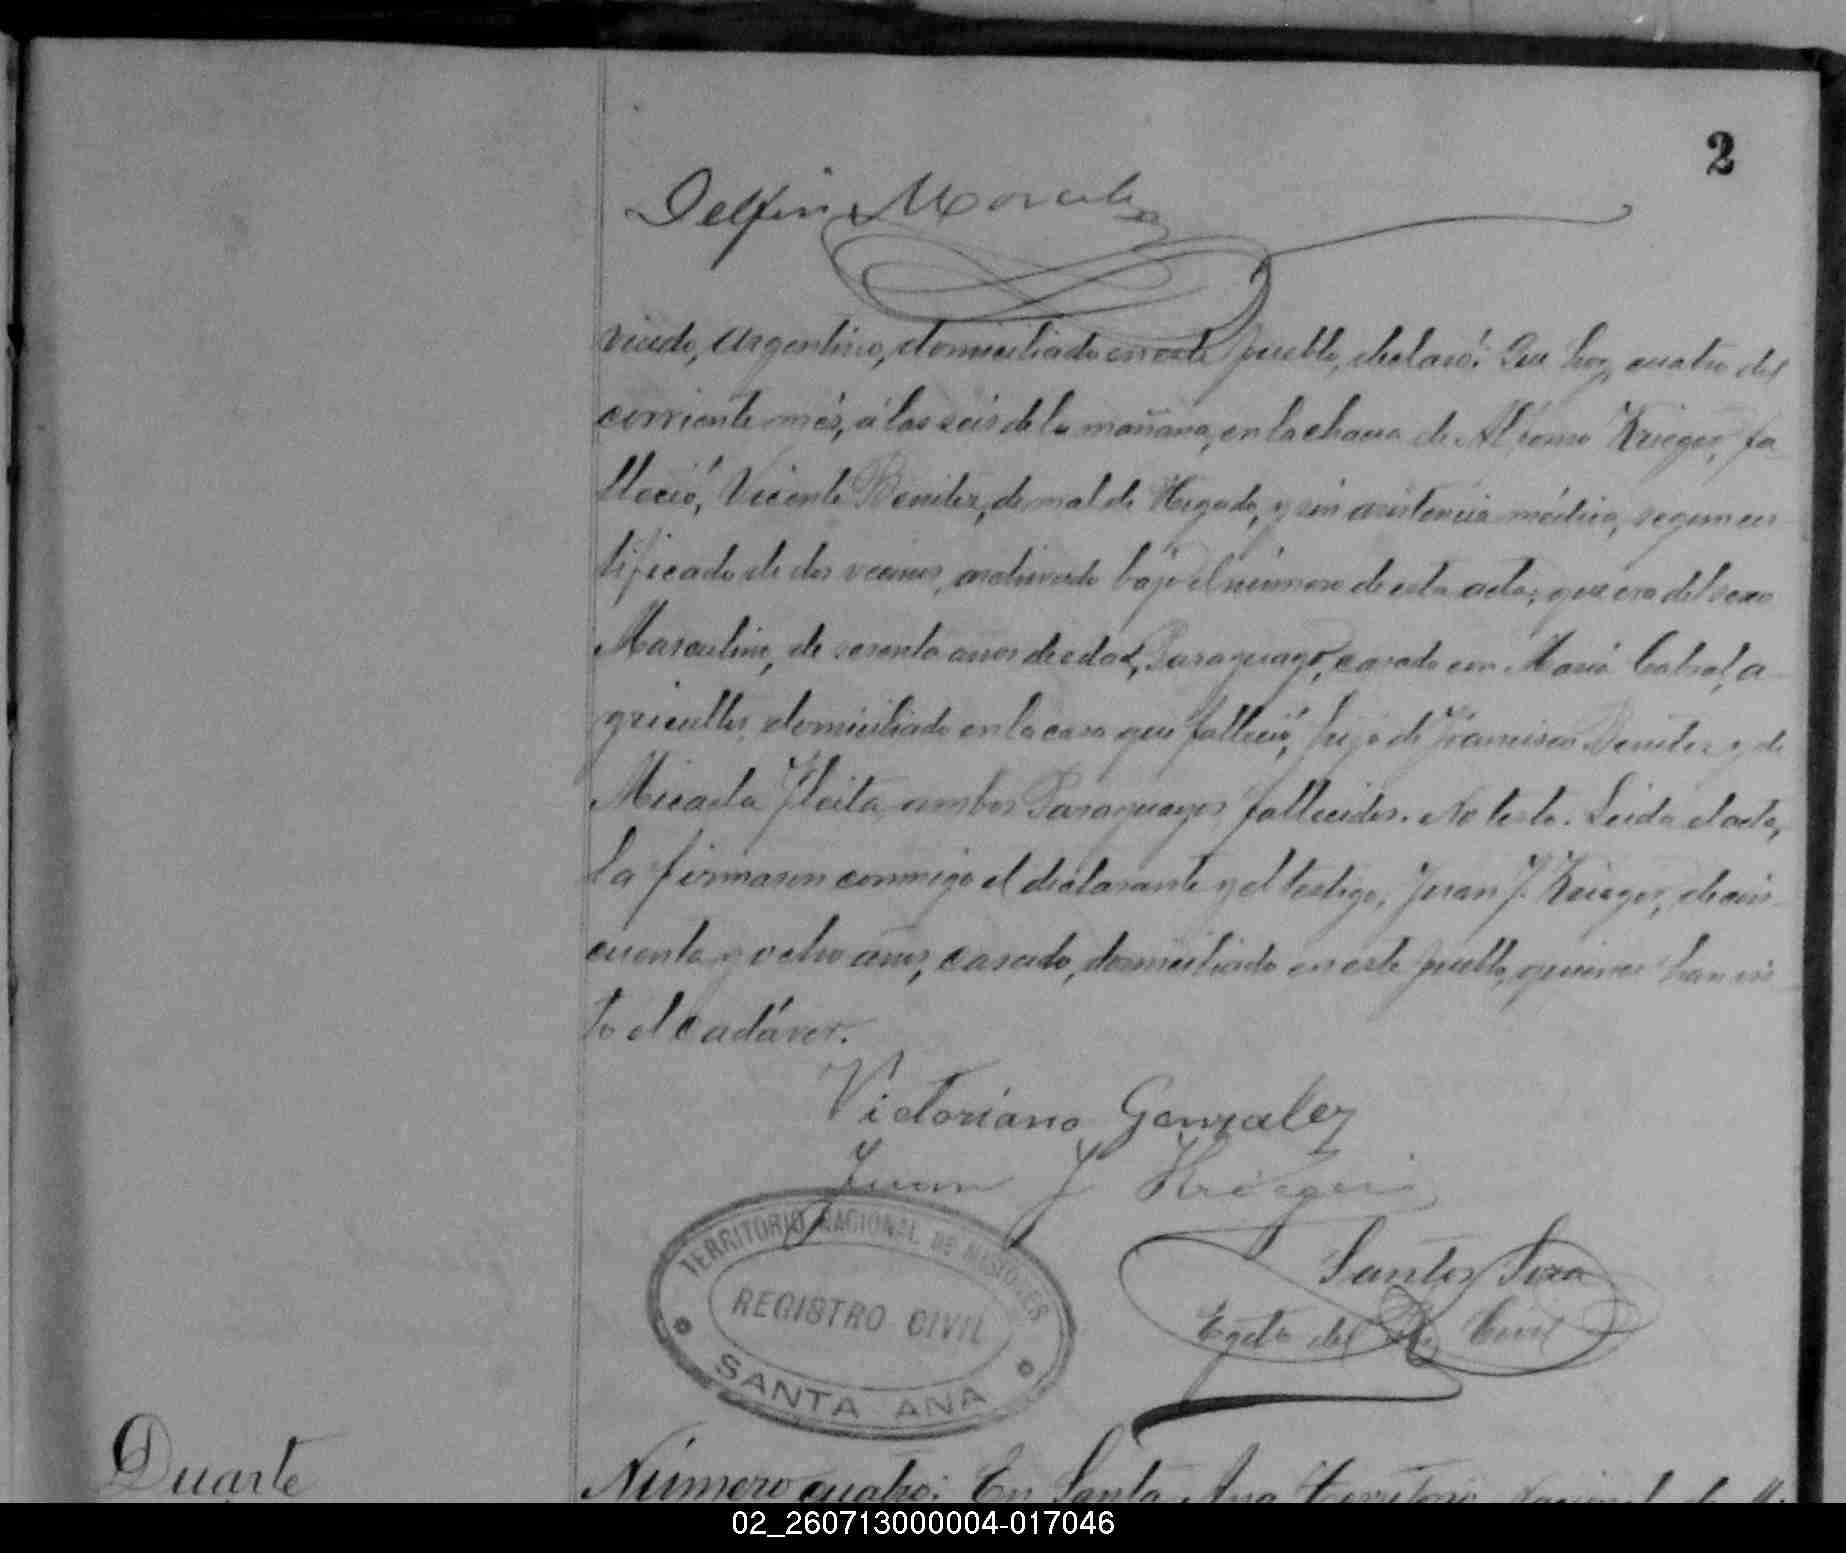 2
Delfin Morales
viudo, Argentino, domiciliado en este pueblo, declaró: Que hoy, cuatro del
corriente més, á las seis de la mañana, en la chacra de Alfonso Krieger, fa
lleció, Vicente Benitez, de mal de Hegado, y sin asistencia médica, segun cer
tificado de dos vecinos, archivado bajo el número de esta acta; que era del sexo
Masculino, de sesenta años de edad, Paraguayo, casado con María Cabral, a
gricultor, domiciliado en la casa que falleció, hijo de Francisco Benitez y de
Micaela Fleita, ambos Paraguayos fallecidos. No testó. Leida el acta,
la firmaron conmigo el declarante y el testigo, Juan J. Krieger, de cin
cuenta y ocho años, casado, domiciliado en este pueblo, quienes han vis
to el cadáver.
Victoriano Gonzalez
Juan J Krieger
TERRITORIO NACIONAL DE MISIONES
REGISTRO CIVIL
SANTA ANA
Santos
del Civil
Duarte
Número cuatro: En Santa Ana Territorio Nacional de Mi
02_260713000004-017046